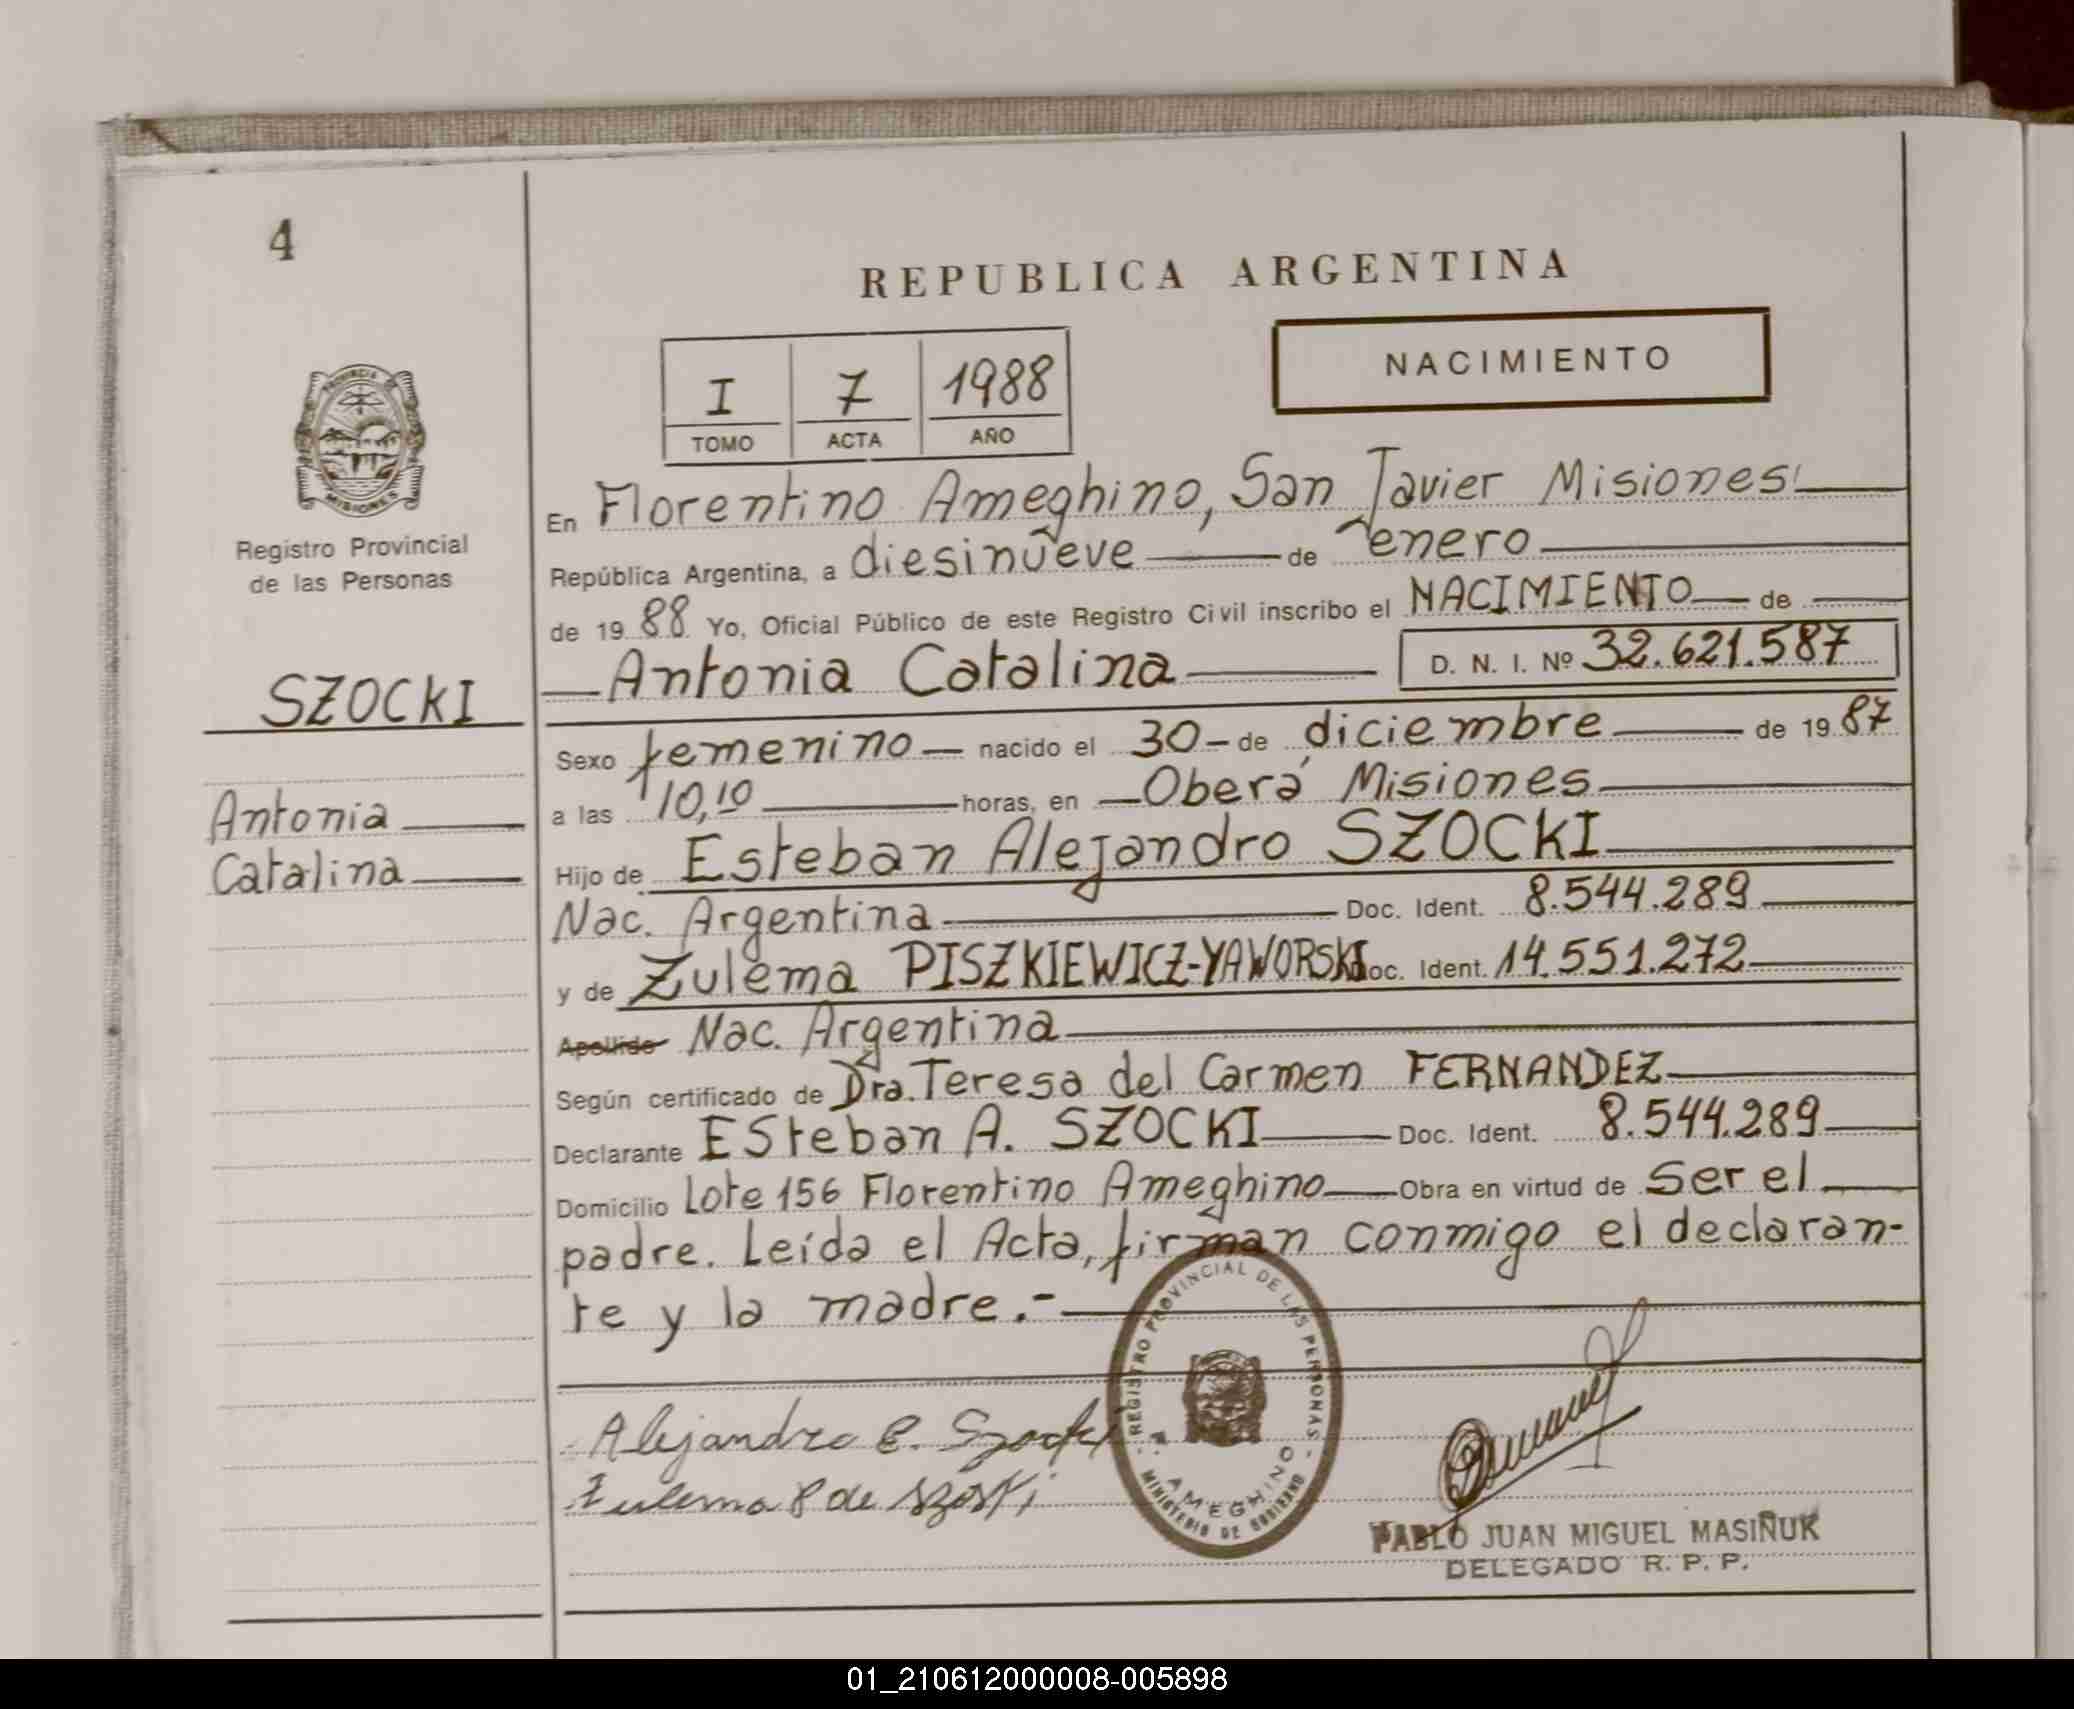 4
REPUBLICA ARGENTINA
NACIMIENTO
I 7 1988
TOMO ACTA AÑO
PROVINCIA
MISIONES
Registro Provincial
de las Personas
SZOCKI
Antonia
Catalina
En Florentino Ameghino, San Javier Misiones
República Argentina, a diesinueve de enero
de 1988 Yo, Oficial Público de este Registro Civil inscribo el NACIMIENTO de
Antonia Catalina D. N. I. Nº 32.621.587
Sexo femenino nacido el 30 - de diciembre de 1987
a las 10,10 horas, en Oberá Misiones
Hijo de Esteban Alejandro SZOCKI
Nac. Argentina Doc. Ident. 8.544.289
y de Zulema PISZKIEWICZ-YAWORSKI Doc. Ident. 14.551.272
Apellido Nac. Argentina
Según certificado de Dra. Teresa del Carmen FERNANDEZ
Declarante Esteban A. SZOCKI Doc. Ident. 8.544.289
Domicilio Lote 156 Florentino Ameghino Obra en virtud de ser el
padre. Leída el Acta, firman conmigo el declaran-
te y la madre.-
Alejandro E. Szocki
Zulema P de Szoski
- REGISTRO PROVINCIAL DE LAS PERSONAS -
AMEGHINO
MINISTERIO DE GOBIERNO
PABLO JUAN MIGUEL MASIÑUK
DELEGADO R. P. P.
01_210612000008-005898